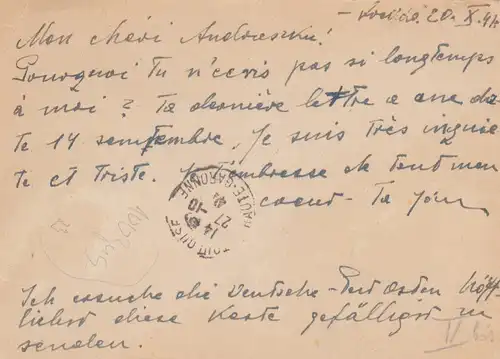 20. X. 41
Mon chéri Andreszku!
Pourquoi Tu n'ecris pas si longtemps
à moi? Ta dernière lettre a une da-
te 14 septembre. Je suis très inquie-
te et triste. Je t'embrasse de tout mon
coeur - Ta
HAUTE-GARONNE
14
27
-10
Ich ersuche die Deutsche-Post Osten höf-
lichst diese Karte gefälligst zu
senden.